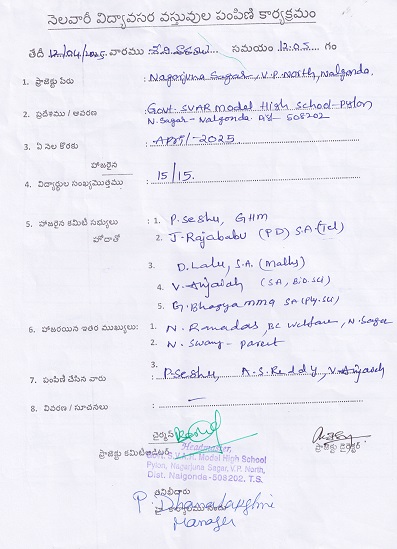 నెలవారీ విద్యావసర వస్తువుల పంపిణి కార్యక్రమం
తేది 12/04/2025 వారము : శనివారము సమయం 12.05 గం
1. ప్రాజెక్టు పేరు : Nagarjuna Sagar, V.P. North, Nalgonda.
2. ప్రదేశము / ఆవరణ : Govt. SVAR Model High School-Pylon
N. Sagar - Nalgonda. Dt- 508202
3. ఏ నెల కొరకు : April - 2025
హాజరైన
4. విద్యార్థుల సంఖ్య/మొత్తము : 15/15.
5. హాజరైన కమిటి సభ్యులు : 1. P. Seshu, GHM
హోదాతో 2. J. Rajababu (PD) S.A. (Tel)
3. D. Lalu, S.A. (Maths)
4. V. Anjaiah (SA, Bio. Sci)
5. G. Bhagyamma SA (Phy. Sci)
6. హాజరయిన ఇతర ముఖ్యులు: 1. N. Ramadas, BC Welfare, N. Sagar
2. N. Swamy - Parent
3.
7. పంపిణి చేసిన వారు : P. Seshu, A. S. Reddy, V. Anjaiah
8. వివరణ / సూచనలు : —
చైర్మన్
ప్రాజెక్టు కమిటి
ప్రాజెక్టు డైరెక్టర్
Headmaster,
Govt. S.V.A.R. Model High School
Pylon, Nagarjuna Sagar, V.P. North,
Dist. Nalgonda-508202. T.S.
P. Dhanalakshmi
Manager